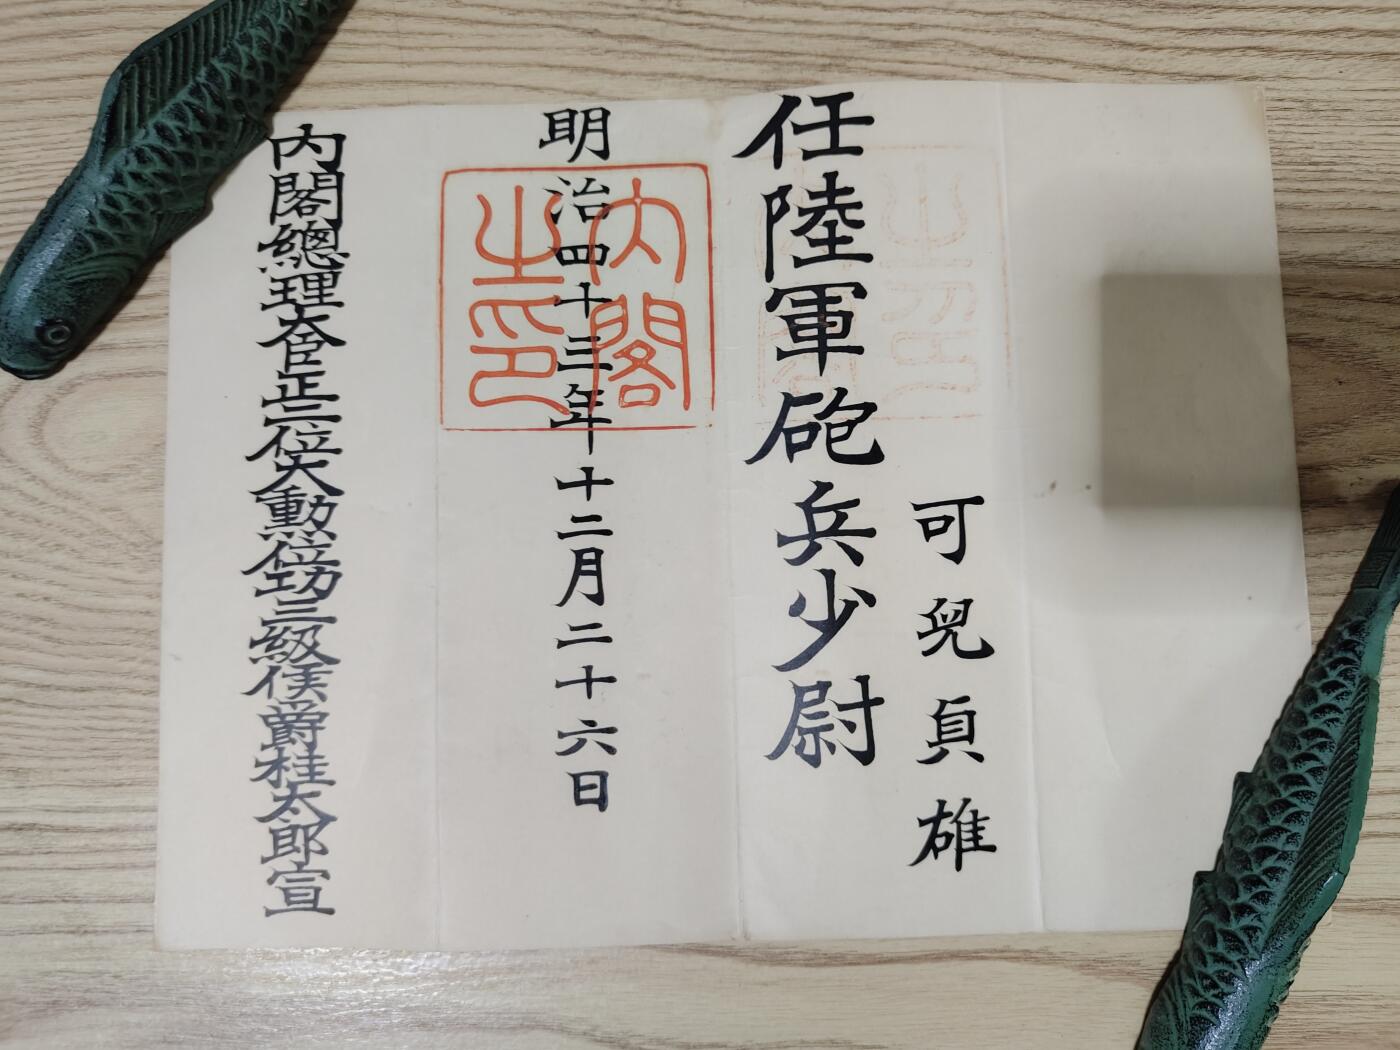 可兒貞雄
任陸軍砲兵少尉
明治四十三年十二月二十六日
内閣之印
内閣總理大臣正二位大勲位功三級侯爵桂太郎宣